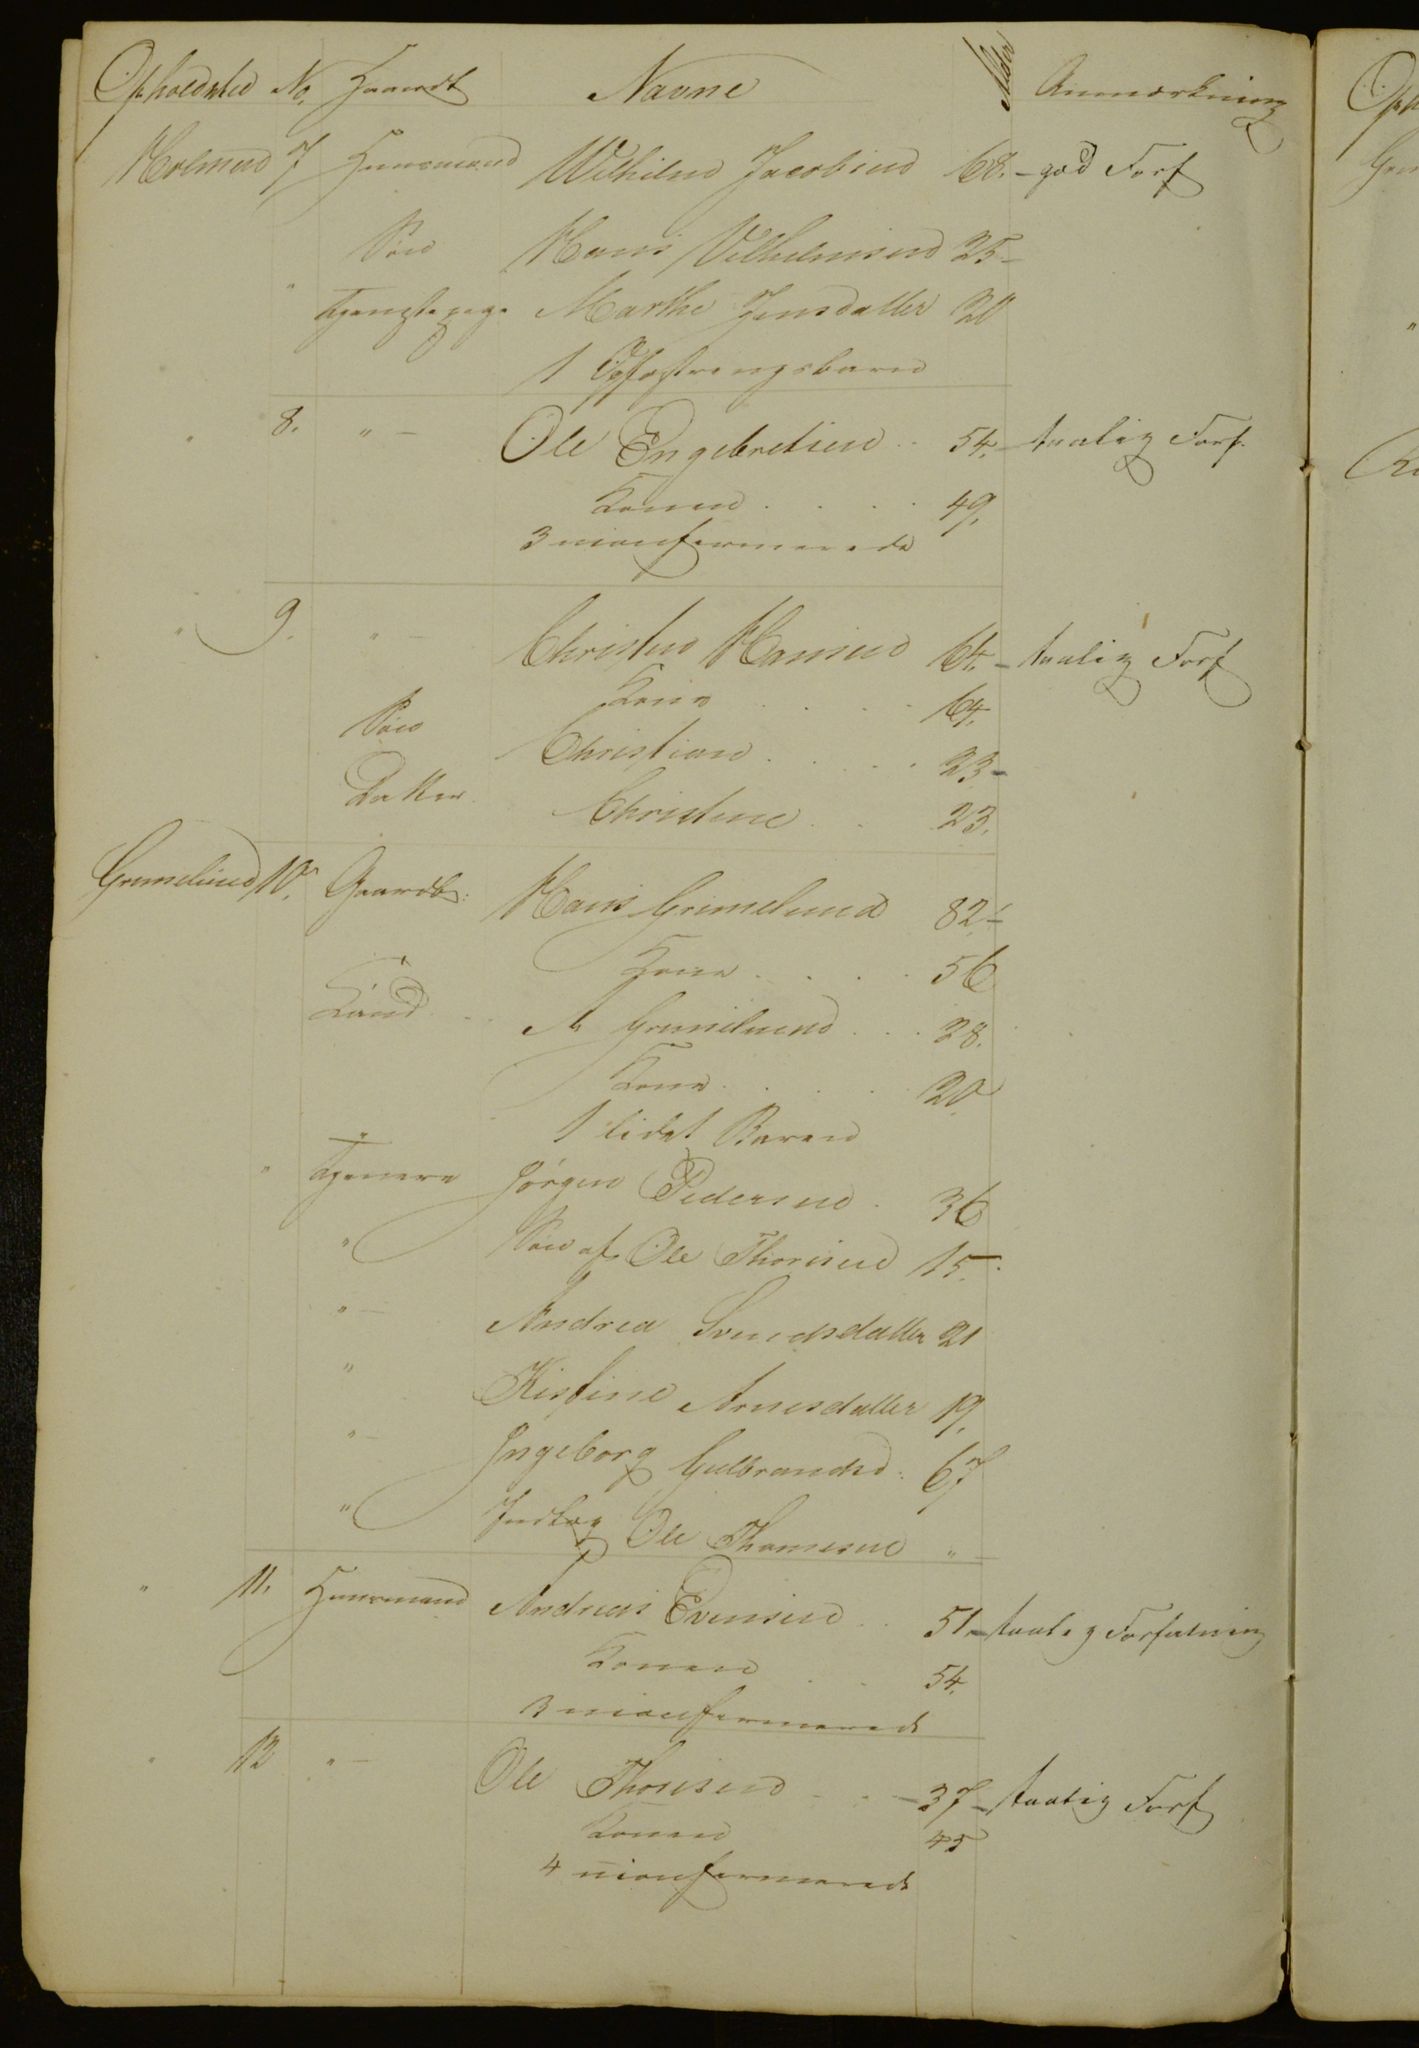 Opholdsted No. Haandt Navne Alder Anmærkning
Holmen 7 Huusmand Wilhilm Jacobsen 68. - god Forf
Søn Hans Vilhelmsen 25 -
" Tjenstepige Marthe Jensdatter 20
1 Opfostringsbarn
" 8. " - Ole Engebretsen .. 54. - taalig Forf.
Konen . . . . 49.
3 uconfirmerede
" 9. " - Christen Hansen 64. - taalig Forf
Kone . . . . 64.
Søn Christian . . . . . 23 -
Datter Christine . . 23.
Grimelund 10. Gaardb: Hans Grimelund 82 -
Kone . . . . 56
Kaarmd . . A Grimelund . . . 28.
Kone . . . . 20
1 lidet Barn
" Tjenere Jørgen Pedersen . 36
" Søn af Ole Thorsen 15.
" - Andrea Svendsdatter 21
" Kistine Arnesdatter 19.
" - Ingeborg Gulbrandsd: 67
" Indlog Ole Thomesen "
" 11. Huusmand Andreas Evensen . . 51. - taalig Forfatning
Konen . . 54.
3 uconfirmerede
" 12 " - Ole Thorsen . . - 37 - taalig Forf
Konen 45
4 uconfirmerede